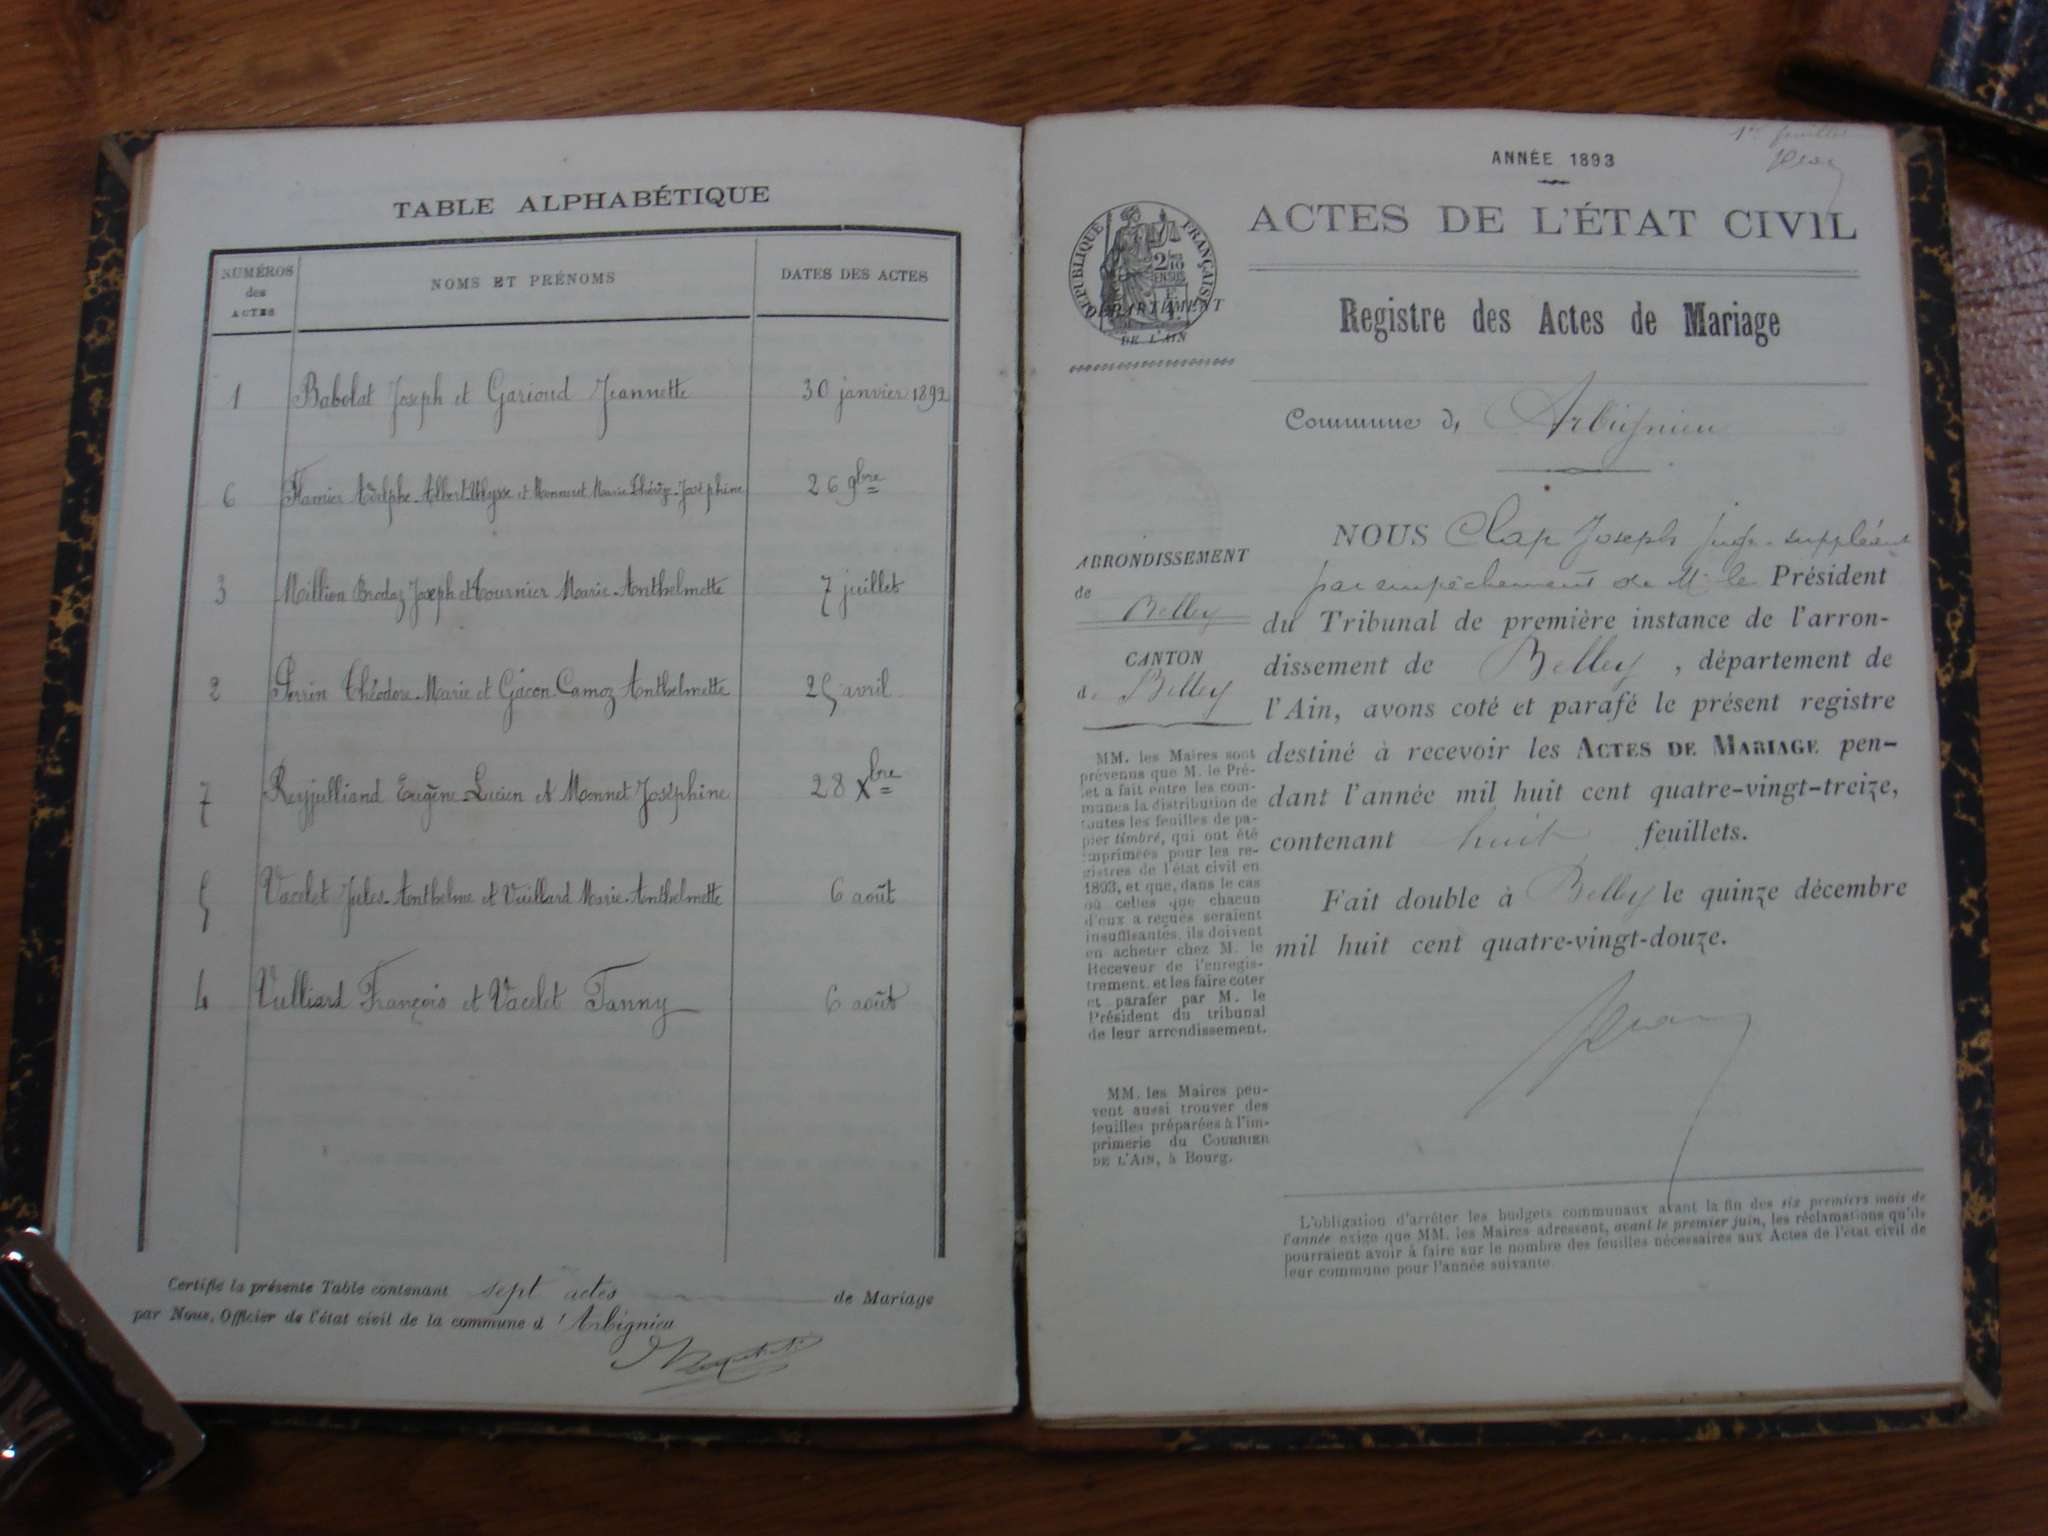 TABLE ALPHABÉTIQUE
NUMÉROS
des
ACTES
NOMS ET PRÉNOMS
DATES DES ACTES
1 Babolat Joseph et Garioud Jeannette 30 janvier 1892
6 Adolphe-Albert-Ulysse et Monneret Marie-Thérèze-Joséphine 26 9bre
3 Million Brodaz Joseph et Tournier Marie-Anthelmette 7 juillet
2 Perrin Théodore-Marie et Gacon-Camoz Anthelmette 25 avril
7 Reyjulliand Eugène-Lucien et Monnet Joséphine 28 Xbre
5 Vacelet Jules-Anthelme et Vuillard Marie-Anthelmette 6 août
4 Vulliard François et Vacelet Fanny 6 août
Certifié la présente Table contenant sept actes de Mariage
par Nous, Officier de l'état civil de la commune d'Arbignieu
1er feuillet
ANNÉE 1893
ACTES DE L'ÉTAT CIVIL
RÉPUBLIQUE FRANÇAISE
2/10
EN SUS
DÉPARTEMENT
DE L'AIN
Registre des Actes de Mariage
Commune d' Arbignieu
ARRONDISSEMENT
de
Belley
CANTON
de Belley
MM. les Maires sont
prévenus que M. le Pré-
fet a fait entre les com-
munes la distribution de
toutes les feuilles de pa-
pier timbré, qui ont été
imprimées pour les re-
gistres de l'état civil en
1893, et que, dans le cas
où celles que chacun
d'eux a reçues seraient
insuffisantes, ils doivent
en acheter chez M. le
Receveur de l'enregis-
trement, et les faire coter
et parafer par M. le
Président du tribunal
de leur arrondissement.
MM. les Maires peu-
vent aussi trouver des
feuilles préparées à l'im-
primerie du COURRIER
DE L'AIN, à Bourg.
NOUS Clap Joseph juge-suppléant
par empêchement de M. le Président
du Tribunal de première instance de l'arron-
dissement de Belley, département de
l'Ain, avons coté et parafé le présent registre
destiné à recevoir les ACTES DE MARIAGE pen-
dant l'année mil huit cent quatre-vingt-treize,
contenant huit feuillets.
Fait double à Belley le quinze décembre
mil huit cent quatre-vingt-douze.
L'obligation d'arrêter les budgets communaux avant la fin des six premiers mois de
l'année exige que MM. les Maires adressent, avant le premier juin, les réclamations qu'ils
pourraient avoir à faire sur le nombre des feuilles nécessaires aux Actes de l'état civil de
leur commune pour l'année suivante.